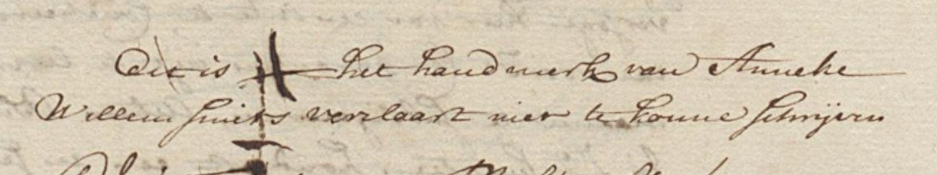 Dit is het handmerk van Anneke
Willem Smets verclaart niet te konne schrijven